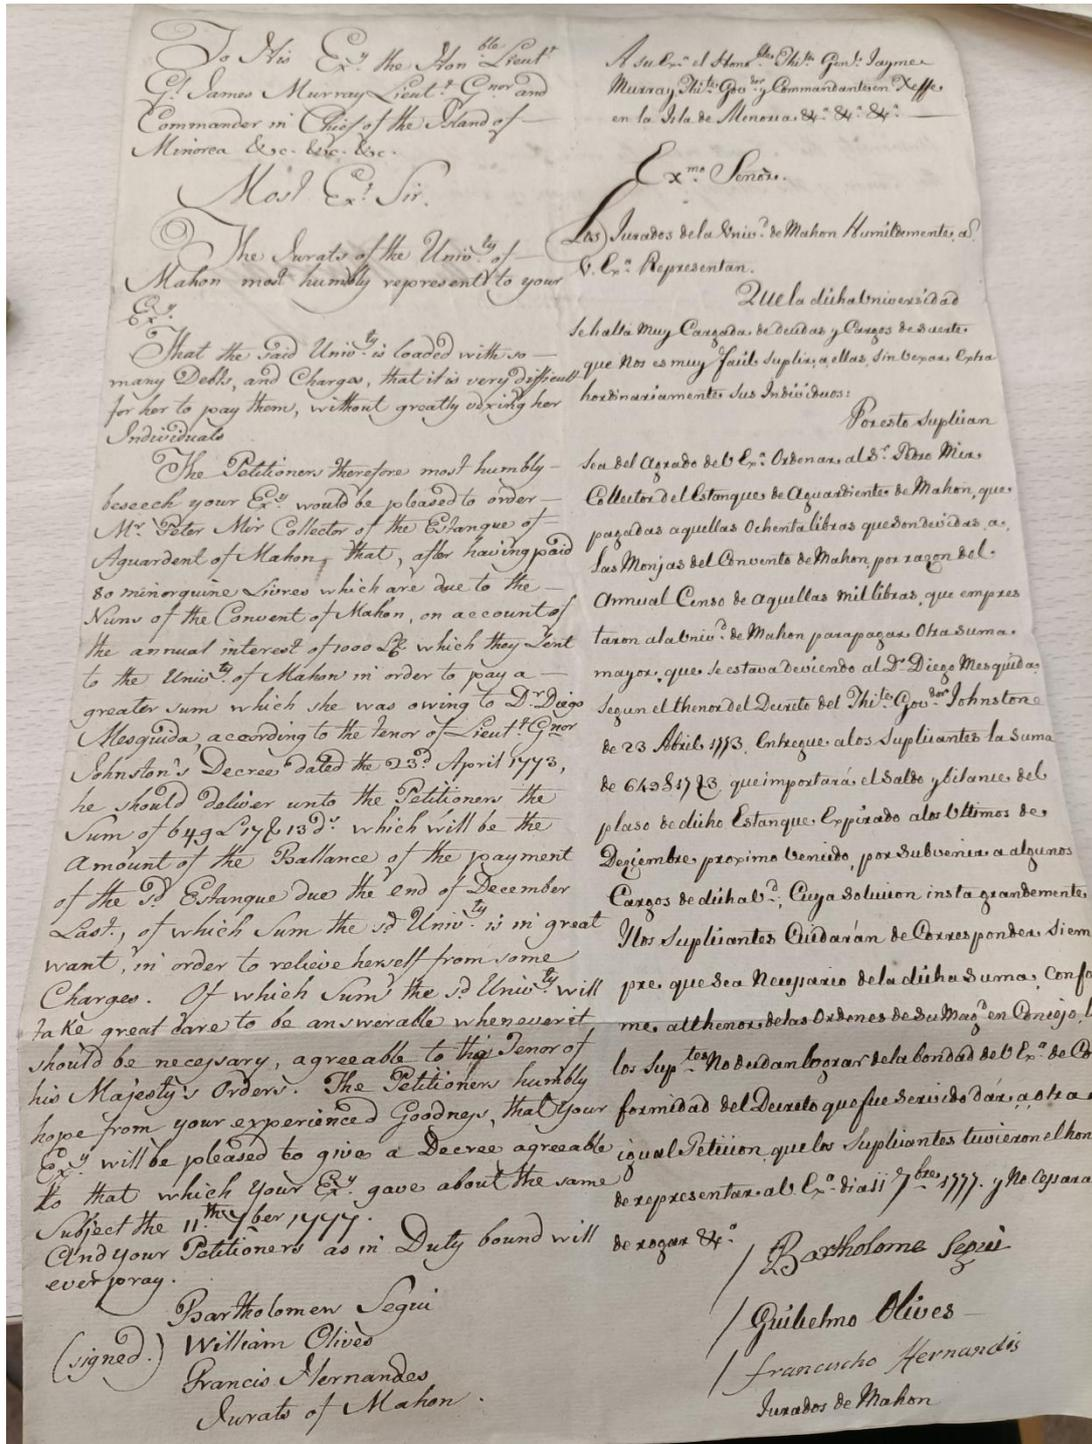 To His Exy. the Honble Lieut.t
Gl. James Murray Lieut.t Gnor and
Commander in Chief of the Island of —
Minorca &c. &c. &c.
Most Ext. Sir.
The Jurats of the Univ.ty of —
Mahon most humbly represent to your
Exy.
That the said Univ.ty is loaded with so —
many Debts, and Charges, that it is very difficult
for her to pay them, without greatly vexing her
Individuals
The Petitioners therefore most humbly —
beseech your Exy. would be pleased to order —
Mr. Peter Mir Collector of the Estanque of —
Aguardent of Mahon, that, after having paid
80 minorquine Livres which are due to the —
Nuns of the Convent of Mahon, on account of
the annual interest of 1000 which they Lent
to the Univ.ty of Mahon in order to pay a —
greater sum which she was owing to Dr. Diego
Mesquida, according to the tenor of Lieut.t Gnor
Johnston's Decree dated the 23d. April 1773,
he should deliver unto the Petitioners the
Sum of 649 L 17 13 ds. which will be the
Amount of the Ballance of the payment
of the sd. Estanque due the end of December
Last., of which Sum the sd Univ.ty is in great
want, in order to relieve herself from some
Charges. Of which Sum the sd. Univ.ty will
take great care to be answerable whenever it
should be necessary, agreeable to the Tenor of
his Majesty's Orders. The Petitioners humbly
hope from your experienced Goodness, that Your
Exy. will be pleased to give a Decree agreeable
to that which Your Exy. gave about the same
Subject the 11th 7ber 1777.
And your Petitioners as in Duty bound will
ever pray.
Bartholomew Segui
(signed.) William Olives
Francis Hernandes
Jurats of Mahon.
A su Exa. el Honoble Thite. Genl. Jayme
Murray Thite. Govdor y Commandante en Xeffe
en la Isla de Menorca &a. &a. &a. —
Exmo Senor.
Los Jurados de la Univd. de Mahon Humildemente, a
V. Exa. Representan.
Que la dicha Universidad
se halla Muy Cargada de deudas y Cargos de suerte
que Nos es muy facil suplir, a ellas, sin vexar Extra
hordinariamente sus Individuos:
Por esto Suplican
sea del Agrado de V Exa. Ordenar, al Sr. Pedro Mir
Collector del Estanque de Aguardiente de Mahon, que
pagadas aquellas Ochenta libras que son devidas, a
las Monjas del Convento de Mahon, por razon del
Annual Censo de aquellas mil libras, que empres
taron a la Univd. de Mahon para pagar Otra suma
mayor, que se estava deviendo al Dr. Diego Mesquida
segun el thenor del Decreto del Thite. Govdor Johnstone
de 23 Abril 1773, Entregue a los Suplicantes la Suma
de 649 17 3, que importará el Saldo y bilance del
plaso de dicho Estanque Expirado a los Ultimos de
Deziembre proximo venido, por subvenir a algunos
Cargos de dicha Ud., Cuya solucion insta grandemente
Y los Suplicantes Cuidarán de Corresponder siem
pre que sea Necessario de la dicha Suma, Confo
me al thenor de las Ordenes de su Magd. en Consejo
los Suptes No dudan lograr de la bondad de V Exa. de Co
formidad del Decreto que fue servido dár, a otra
igual Peticion que los Suplicantes tuvieron el hon
de representar al V Exa. dia 11 7bre 1777. y No Cessara
de rogar &a.
/ Bartholome Segui
/ Guilielmo Olives —
/ francischo Hernandis
Jurados de Mahon